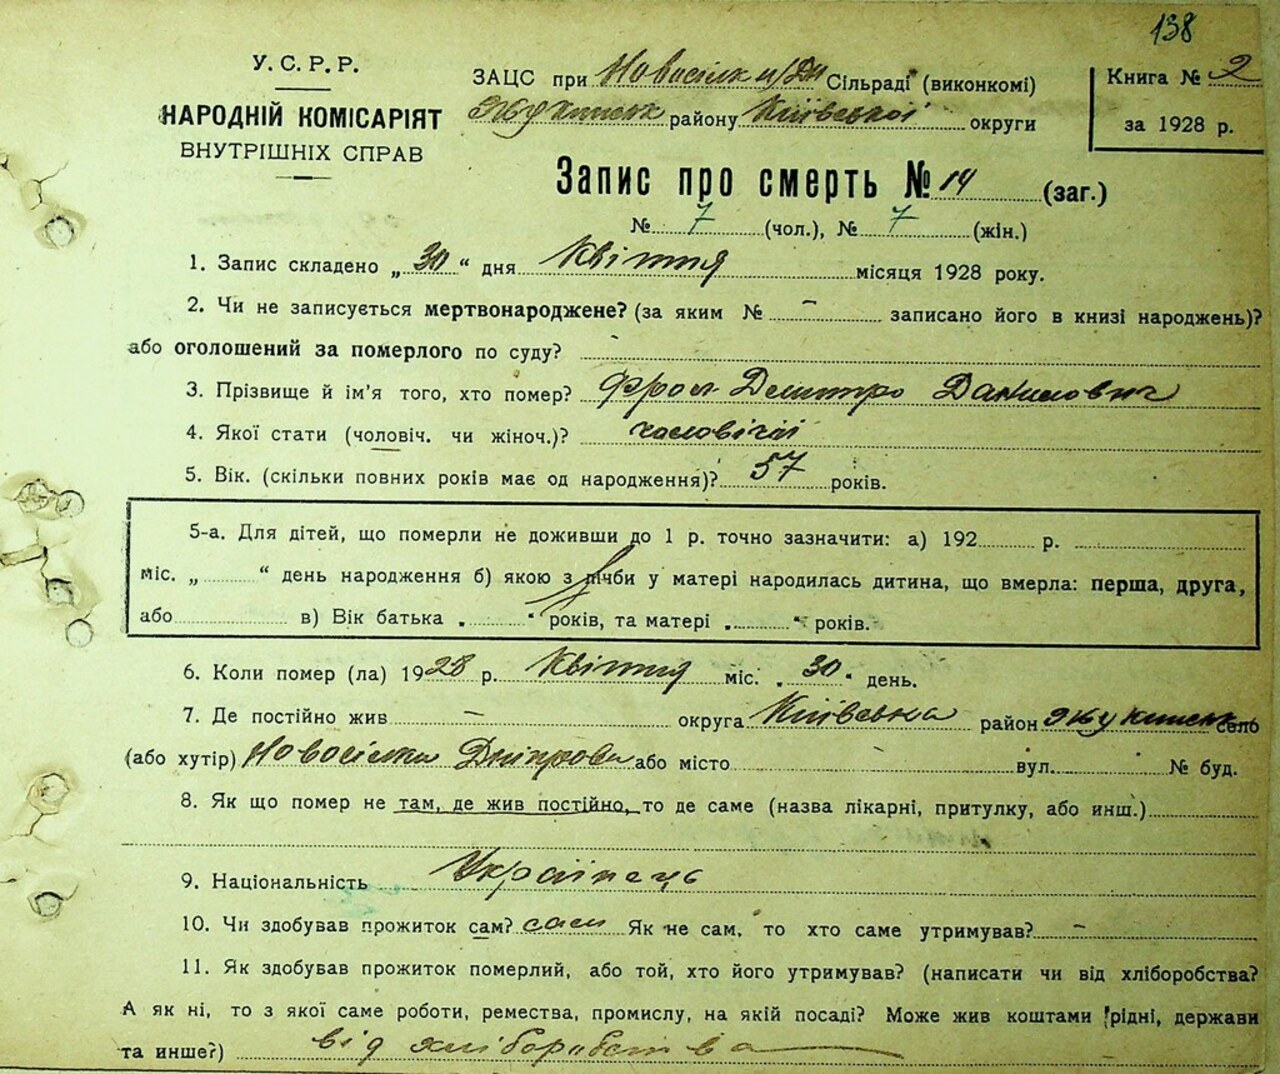 138
У. С. Р. Р.
НАРОДНІЙ КОМІСАРІЯТ
ВНУТРІШНІХ СПРАВ
ЗАЦС при Новосілк н/Дн Сільраді (виконкомі)
району Київської округи
Книга № 2
за 1928 р.
Запис про смерть № 14 (заг.)
№ 7 (чол.), № 7 (жін.)
1. Запис складено „30“ дня Квітня місяця 1928 року.
2. Чи не записується мертвонароджене? (за яким № – записано його в книзі народжень)?
або оголошений за померлого по суду?
3. Прізвище й ім'я того, хто помер? Фрол Дмитро Данилович
4. Якої стати (чоловіч. чи жіноч.)? чоловічої
5. Вік. (скільки повних років має од народження)? 57 років.
5-а. Для дітей, що померли не доживши до 1 р. точно зазначити: а) 192 р.
міс. „ “ день народження б) якою з лічби у матері народилась дитина, що вмерла: перша, друга,
або в) Вік батька „ “ років, та матері „ “ років.
6. Коли помер (ла) 1928 р. Квітня міс. „30“ день.
7. Де постійно жив – округа Київська район село
(або хутір) Новосілки Дніпрови або місто вул. № буд.
8. Як що помер не там, де жив постійно, то де саме (назва лікарні, притулку, або инш.)
9. Національність Українець
10. Чи здобував прожиток сам? сам Як не сам, то хто саме утримував? –
11. Як здобував прожиток померлий, або той, хто його утримував? (написати чи від хліборобства?
А як ні, то з якої саме роботи, ремества, промислу, на якій посаді? Може жив коштами рідні, держави
та инше?) від хліборобства